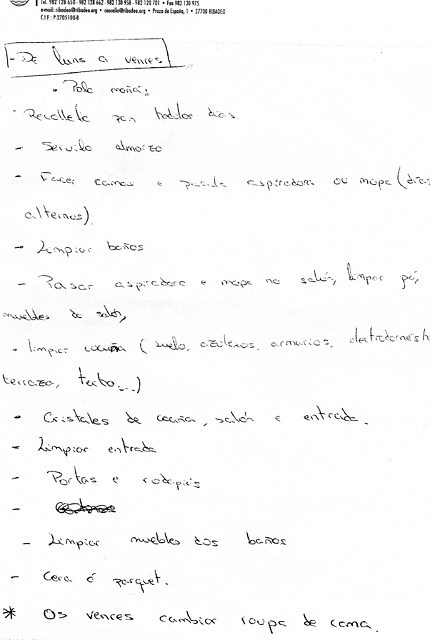 Tel. 982 128 650 - 982 128 662 - 982 130 958 - 982 120 701 • Fax 982 130 975
e-mail: ribadeo@ribadeo.org • concello@ribadeo.org • Praza de España, 1 • 27700 RIBADEO
C.I.F.: P-2705100-B
- De luns a venres
• Pola mañá:
- Recollela pan todolos días
- Servilo almorzo
- Facer camas e pasala aspiradora ou mopa (días
alternos)
- Limpiar baños
- Pasar aspiradora e mopa no salón, limpar pó,
muebles do salón,
- limpiar cociña (suelo, azulexos, armarios, electrodomésti
terraza, teito...)
- Cristales de cociña, salón e entrada.
- Limpiar entrada
- Portas e rodapiés
-
- Limpiar muebles dos baños
- Cera ó parquet.
* Os venres cambiar roupa de cama.